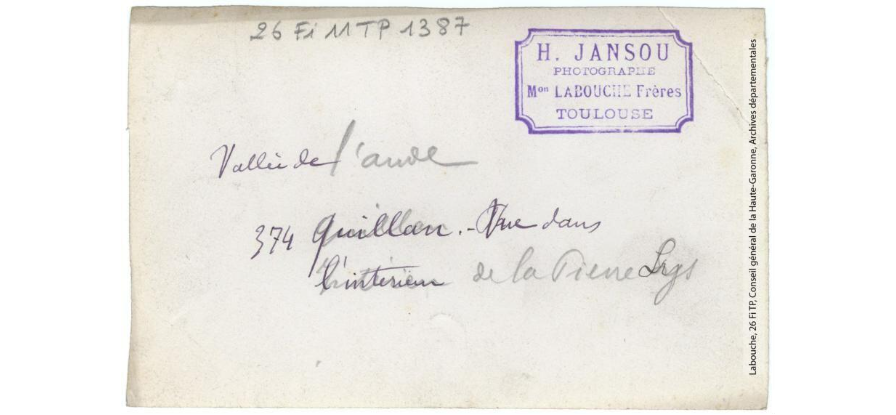 26 Fi 11 TP 1387
H. JANSOU
PHOTOGRAPHE
Mon LABOUCHE Frères
TOULOUSE
Vallée de l'aude
374 Quillan. - Vue dans
l'intérieur de la Pierre Lys
Labouche, 26 Fi TP, Conseil général de la Haute-Garonne, Archives départementales